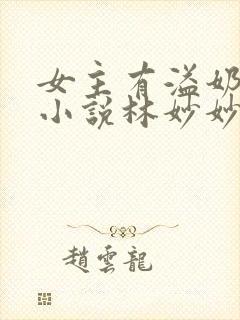 女主有溢奶
小說林妙妙
趙雲龍